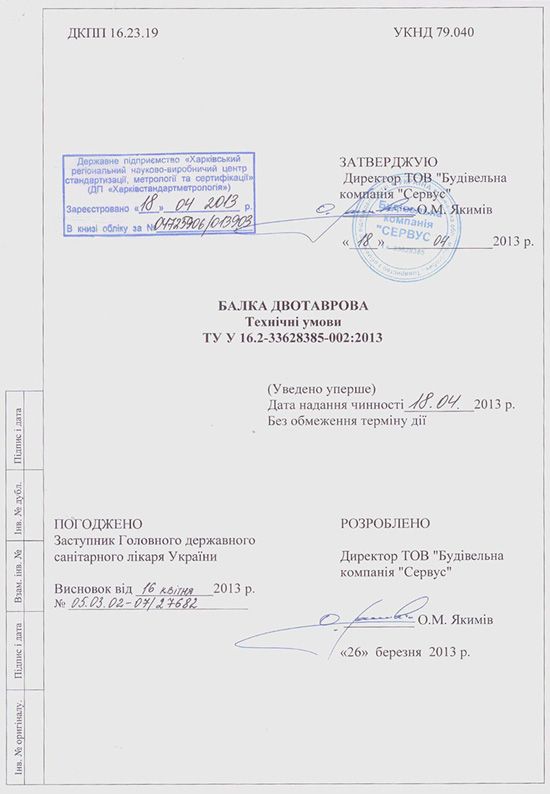 ДКПП 16.23.19 УКНД 79.040
Державне підприємство «Харківський
регіональний науково-виробничий центр
стандартизації, метрології та сертифікації»
(ДП «Харківстандартметрологія»)
Зареєстровано «18» 04 2013 р.
В книзі обліку за № 04725906/013903
ЗАТВЕРДЖУЮ
Директор ТОВ "Будівельна
компанія "Сервус"
О.М. Якимів
Будівельна
компанія
"СЕРВУС"
33628385
« 18 » 04 2013 р.
БАЛКА ДВОТАВРОВА
Технічні умови
ТУ У 16.2-33628385-002:2013
(Уведено уперше)
Дата надання чинності 18.04. 2013 р.
Без обмеження терміну дії
ПОГОДЖЕНО
Заступник Головного державного
санітарного лікаря України
Висновок від 16 квітня 2013 р.
№ 05.03.02-07/27682
РОЗРОБЛЕНО
Директор ТОВ "Будівельна
компанія "Сервус"
О.М. Якимів
«26» березня 2013 р.
Підпис і дата
Інв. № дубл.
Взам. інв. №
Підпис і дата
Інв. № оригіналу.